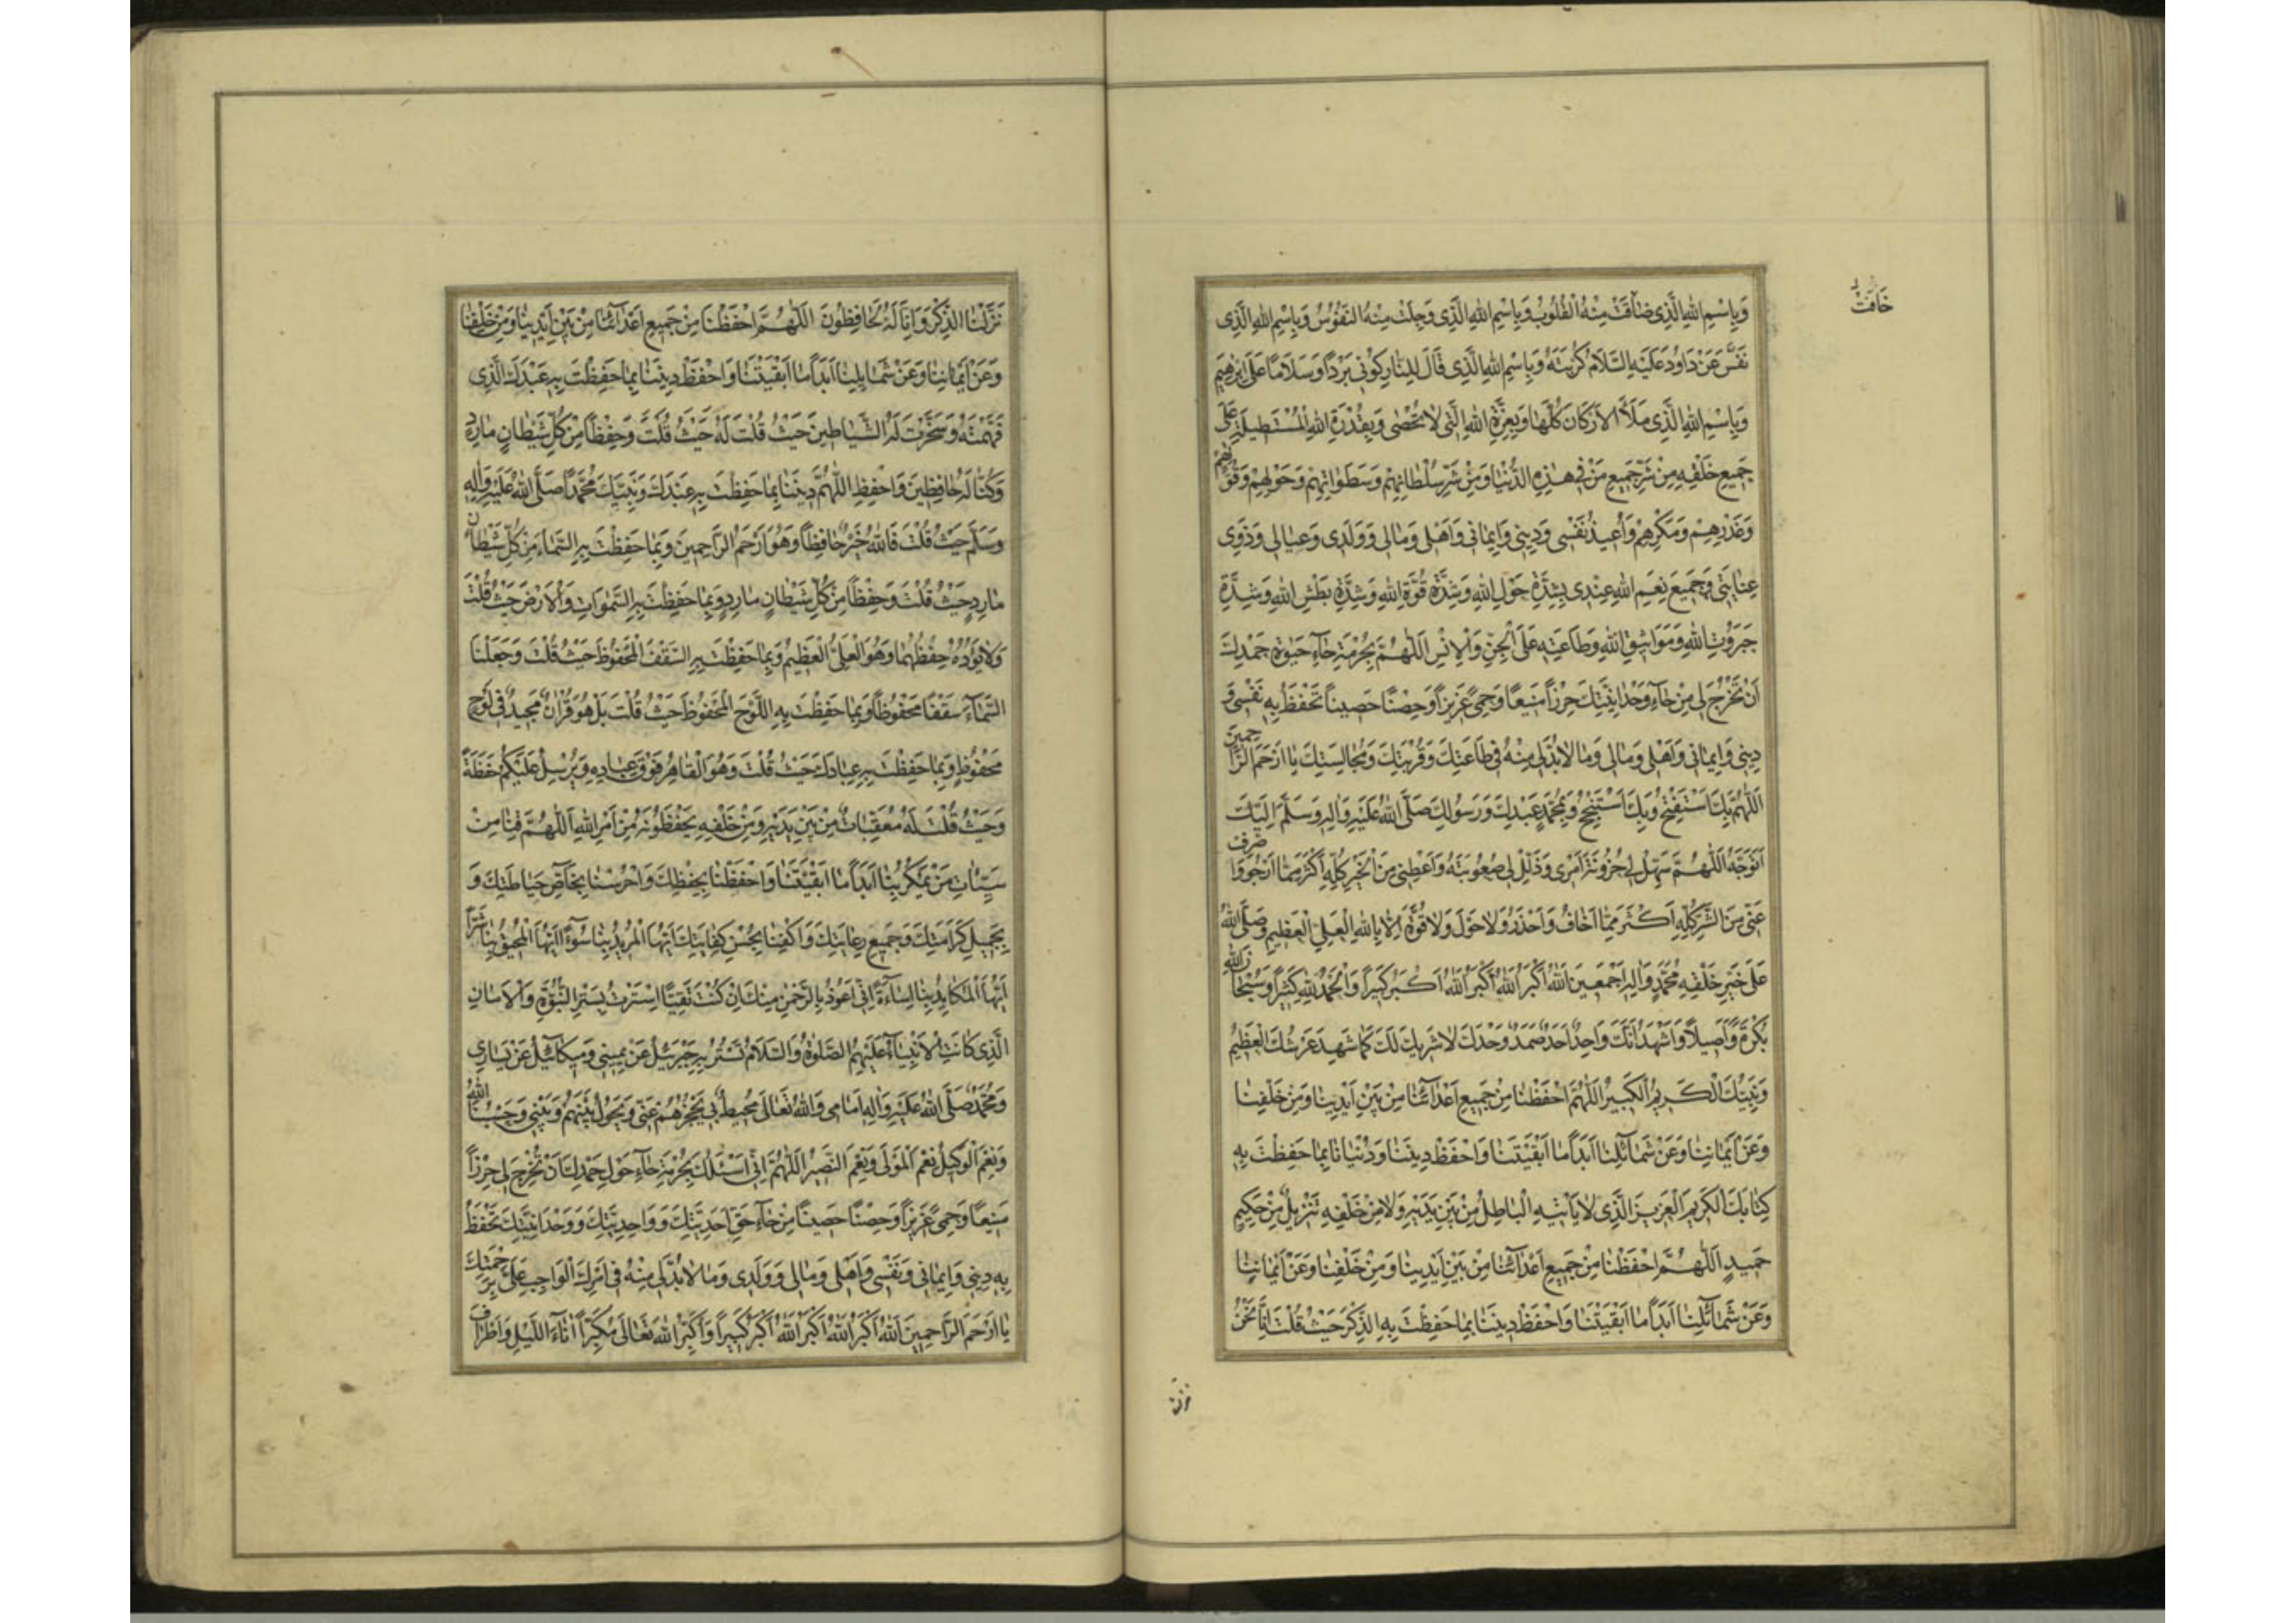 خَافَتْ
وَبِاسْمِ اللهِ الَّذِی ضٰاقَتْ مِنْهُ الْقُلُوبُ وَبِاسْمِ اللهِ الَّذِی وَجِلَتْ مِنْهُ النُّفُوسُ وَبِاسْمِ اللهِ الَّذِی
نَفَّسَ عَنْ دَاوُدَ عَلَیْهِ السَّلَامُ كُرْبَتَهُ وَبِاسْمِ اللهِ الَّذِی قَالَ لِلنّٰارِ كُونِی بَرْدًا وَسَلَامًا عَلٰی اِبْرٰهِیمَ
وَبِاسْمِ اللهِ الَّذِی مَلَأَ الْاَرْكَانَ كُلَّهَا وَبِعِزَّةِ اللهِ الَّتِی لٰا تُحْصٰی وَبِقُدْرَةِ اللهِ الْمُسْتَطِیلَةِ عَلٰی
جَمِیعِ خَلْقِهِ مِنْ شَرِّ جَمِیعِ مَنْ فِی هٰذِهِ الدُّنْیَا وَمِنْ شَرِّ سُلْطَانِهِمْ وَسَطَوَاتِهِمْ وَحَوْلِهِمْ وَقُوَّتِهِمْ
وَغَدْرِهِمْ وَمَكْرِهِمْ وَأُعِیذُ نَفْسِی وَدِینِی وَاِیمٰانِی وَاَهْلِی وَمٰالِی وَوَلَدِی وَعِیٰالِی وَذَوِی
عِنٰایَتِی وَجَمِیعَ نِعَمِ اللهِ عِنْدِی بِشِدَّةِ حَوْلِ اللهِ وَشِدَّةِ قُوَّةِ اللهِ وَشِدَّةِ بَطْشِ اللهِ وَشِدَّةِ
جَبَرُوتِ اللهِ وَمَوَاثِیقِ اللهِ وَطَاعَتِهِ عَلَی الْجِنِّ وَالْاِنْسِ اَللّٰهُمَّ بِحُرْمَةِ حَآءِ حَیٰوةِ حَمْدِكَ
اَنْ تُخْرِجَ لِی مِنْ حَآءِ وَحْدَانِیَّتِكَ حِرْزًا مَنِیعًا وَحِمًی عَزِیزًا وَحِصْنًا حَصِینًا تَحْفَظُ بِهِ نَفْسِی وَ
دِینِی وَاِیمٰانِی وَاَهْلِی وَمٰالِی وَمٰا لٰا بُدَّ لِی مِنْهُ فِی طَاعَتِكَ وَقُرْبَتِكَ وَمُجَالَسَتِكَ یٰا اَرْحَمَ الرَّاحِمِینَ
اَللّٰهُمَّ بِكَ اَسْتَفْتِحُ وَبِكَ اَسْتَنْجِحُ وَبِمُحَمَّدٍ عَبْدِكَ وَرَسُولِكَ صَلَّی اللهُ عَلَیْهِ وَاٰلِهِ وَسَلَّمَ اِلَیْكَ
اَتَوَجَّهُ اَللّٰهُمَّ سَهِّلْ لِی حُزُونَةَ اَمْرِی وَذَلِّلْ لِی صُعُوبَتَهُ وَاَعْطِنِی مِنَ الْخَیْرِ كُلِّهِ اَكْثَرَ مِمَّا اَرْجُو وَاصْرِفْ
عَنِّی مِنَ الشَّرِّ كُلِّهِ اَكْثَرَ مِمَّا اَخَافُ وَاَحْذَرُ وَلَا حَوْلَ وَلَا قُوَّةَ اِلَّا بِاللهِ الْعَلِیِّ الْعَظِیمِ وَصَلَّی اللهُ
عَلٰی خَیْرِ خَلْقِهِ مُحَمَّدٍ وَاٰلِهِ اَجْمَعِینَ اَللهُ اَكْبَرُ اَللهُ اَكْبَرُ اَللهُ اَكْبَرُ كَبِیرًا وَالْحَمْدُ لِلّٰهِ كَثِیرًا وَسُبْحَانَ اللهِ
بُكْرَةً وَاَصِیلًا وَاَشْهَدُ اَنَّكَ وَاحِدٌ اَحَدٌ صَمَدٌ وَحْدَكَ لٰا شَرِیكَ لَكَ كَمَا شَهِدَ عَرْشُكَ الْعَظِیمُ
وَنَبِیُّكَ الْكَرِیمُ الْكَبِیرُ اَللّٰهُمَّ احْفَظْنٰا مِنْ جَمِیعِ اَعْدَآئِنٰا مِنْ بَیْنِ اَیْدِینَا وَمِنْ خَلْفِنٰا
وَعَنْ اَیْمَانِنٰا وَعَنْ شَمَآئِلِنٰا اَبَدًا مَا اَبْقَیْتَنَا وَاحْفَظْ دِینَنٰا وَدُنْیَانَا بِمٰا حَفِظْتَ بِهِ
كِتَابَكَ الْكَرِیمَ الْعَزِیزَ الَّذِی لٰا یَأْتِیهِ الْبَاطِلُ مِنْ بَیْنِ یَدَیْهِ وَلٰا مِنْ خَلْفِهِ تَنْزِیلٌ مِنْ حَكِیمٍ
حَمِیدٍ اَللّٰهُمَّ احْفَظْنٰا مِنْ جَمِیعِ اَعْدَآئِنٰا مِنْ بَیْنِ اَیْدِینَا وَمِنْ خَلْفِنٰا وَعَنْ اَیْمَانِنٰا
وَعَنْ شَمَآئِلِنٰا اَبَدًا مٰا اَبْقَیْتَنَا وَاحْفَظْ دِینَنَا بِمٰا حَفِظْتَ بِهِ الذِّكْرَ حَیْثُ قُلْتَ اِنَّا نَحْنُ
نزلنا
نَزَّلْنَا الذِّكْرَ وَاِنَّا لَهُ لَحَافِظُونَ اَللّٰهُمَّ احْفَظْنَا مِنْ جَمِیعِ اَعْدَآئِنَا مِنْ بَیْنِ اَیْدِینَا وَمِنْ خَلْفِنٰا
وَعَنْ اَیْمٰانِنٰا وَعَنْ شَمَایِلِنٰا اَبَدًا مٰا اَبْقَیْتَنٰا وَاحْفَظْ دِینَنٰا بِمٰا حَفِظْتَ بِهِ عَبْدَكَ الَّذِی
فَهَّمْتَهُ وَسَخَّرْتَ لَهُ الشَّیٰاطِینَ حَیْثُ قُلْتَ لَهُ حَیْثُ قُلْتَ وَحِفْظًا مِنْ كُلِّ شَیْطٰانٍ مٰارِدٍ
وَكُنَّا لَهُ حٰافِظِینَ وَاحْفَظِ اللّٰهُمَّ دِینَنٰا بِمٰا حَفِظْتَ بِهِ عَبْدَكَ وَنَبِیَّكَ مُحَمَّدًا صَلَّی اللهُ عَلَیْهِ وَاٰلِهِ
وَسَلَّمَ حَیْثُ قُلْتَ فَاللهُ خَیْرٌ حٰافِظًا وَهُوَ اَرْحَمُ الرَّاحِمِینَ وَبِمٰا حَفِظْتَ بِهِ السَّمٰاءَ مِنْ كُلِّ شَیْطٰانٍ
مٰارِدٍ حَیْثُ قُلْتَ وَحِفْظًا مِنْ كُلِّ شَیْطٰانٍ مٰارِدٍ وَبِمٰا حَفِظْتَ بِهِ السَّمٰوَاتِ وَالْاَرْضَ حَیْثُ قُلْتَ
وَلٰا یَؤُدُهُ حِفْظُهُمَا وَهُوَ الْعَلِیُّ الْعَظِیمُ وَبِمٰا حَفِظْتَ بِهِ السَّقْفَ الْمَحْفُوظَ حَیْثُ قُلْتَ وَجَعَلْنَا
السَّمَآءَ سَقْفًا مَحْفُوظًا وَبِمٰا حَفِظْتَ بِهِ اللَّوْحَ الْمَحْفُوظَ حَیْثُ قُلْتَ بَلْ هُوَ قُرْاٰنٌ مَجِیدٌ فِی لَوْحٍ
مَحْفُوظٍ وَبِمٰا حَفِظْتَ بِهِ عِبَادَكَ حَیْثُ قُلْتَ وَهُوَ الْقٰاهِرُ فَوْقَ عِبٰادِهِ وَیُرْسِلُ عَلَیْكُمْ حَفَظَةً
وَحَیْثُ قُلْتَ لَهُ مُعَقِّبَاتٌ مِنْ بَیْنِ یَدَیْهِ وَمِنْ خَلْفِهِ یَحْفَظُونَهُ مِنْ اَمْرِ اللهِ اَللّٰهُمَّ قِنٰا مِنْ
سَیِّئٰاتِ مَنْ یَمْكُرُ بِنٰا اَبَدًا مٰا اَبْقَیْتَنَا وَاحْفَظْنٰا بِحِفْظِكَ وَاحْرُسْنٰا بِخٰاصِّ حِیَاطَتِكَ وَ
بِجَمِیلِ كَرَامَتِكَ وَجَمِیعِ رِعٰایَتِكَ وَاكْفِنٰا بِحُسْنِ كِفٰایَتِكَ اَیُّهَا الْمُرِیدُ بِنٰا سُوٓءًا اَیُّهَا الْمُحِیقُ بِنٰا شَرًّا
اَیُّهَا الْمَكَایِدُ بِنٰا اِسَاءَةً اِنِّی اَعُوذُ بِالرَّحْمٰنِ مِنْكَ اِنْ كُنْتَ تَقِیًّا اِسْتَتَرْتُ بِسَتْرِ النُّبُوَّةِ وَالْاَمَانِ
الَّذِی كَانَتِ الْاَنْبِیَآءُ عَلَیْهِمُ الصَّلٰوةُ وَالسَّلَامُ تَسْتَتِرُ بِهِ جِبْرَئِیلُ عَنْ یَمِینِی وَمِیكَآئِیلُ عَنْ یَسَارِی
وَمُحَمَّدٌ صَلَّی اللهُ عَلَیْهِ وَاٰلِهِ اَمَامِی وَاللهُ تَعَالٰی مُحِیطٌ بِی یَحْجُزُهُمْ عَنِّی وَیَحُولُ بَیْنَهُمْ وَبَیْنِی وَحَسْبُنَا اللهُ
وَنِعْمَ الْوَكِیلُ نِعْمَ الْمَوْلٰی وَنِعْمَ النَّصِیرُ اَللّٰهُمَّ اِنِّی اَسْئَلُكَ بِحُرْمَةِ حَآءِ حَوْلِ حَمْدِكَ اَنْ تُخْرِجَ لِی حِرْزًا
مَنِیعًا وَحِمًی عَزِیزًا وَحِصْنًا حَصِینًا مِنْ حَآءِ حَقِّ اَحَدِیَّتِكَ وَوَاحِدِیَّتِكَ وَوَحْدَانِیَّتِكَ تَحْفَظُ
بِهِ دِینِی وَاِیمٰانِی وَنَفْسِی وَاَهْلِی وَمٰالِی وَوَلَدِی وَمَا لٰا بُدَّ لِی مِنْهُ فِی اَمْرِكَ الْوَاجِبِ عَلَیَّ بِرَحْمَتِكَ
یٰا اَرْحَمَ الرَّاحِمِینَ اَللهُ اَكْبَرُ اَللهُ اَكْبَرُ اَللهُ اَكْبَرُ كَبِیرًا وَاُكَبِّرُ اللهَ تَعَالٰی مُكَبِّرًا اٰنَآءَ اللَّیْلِ وَاَطْرَافَ